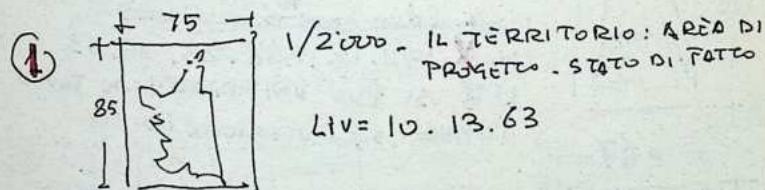 75
1/2000 - IL TERRITORIO: AREA DI
PROGETTO - STATO DI FATTO
1
85
LIV = 10.13.63